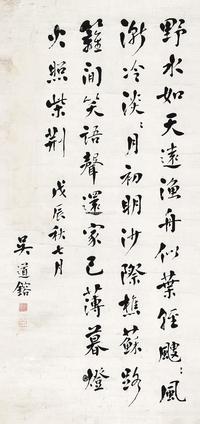 野水如天遠漁舟似葉輕飃〻風
漸冷淡〻月初明沙際樵蘇路
籬間笑語聲還家已薄暮燈
火照柴荆 戊辰秋七月
吳道鎔